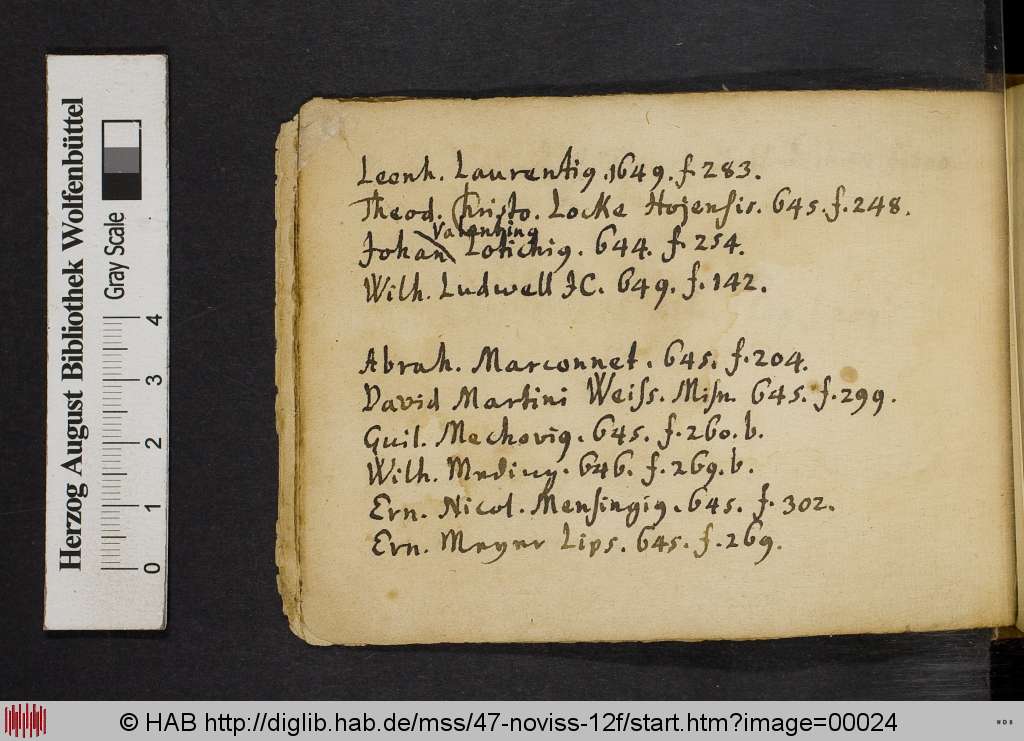 Leonh. Laurentiꝰ. 1649. f. 283.
Theod. Christo. Locke Hojensis. 645. f. 248.
Valentinꝰ
Johan Lotichiꝰ. 644. f. 254.
Wilh. Ludwell JC. 649. f. 142.
Abrah. Marconnet. 645. f. 204.
David Martini Weiss. Misn. 645. f. 299.
Guil. Mechoviꝰ. 645. f. 260. b.
Wilh. 646. f. 269. b.
Ern. Nicol. Mensingiꝰ. 645. f. 302.
Ern. Meyer Lips. 645. f. 269.
Herzog August Bibliothek Wolfenbüttel
Gray Scale
0 1 2 3 4
© HAB http://diglib.hab.de/mss/47-noviss-12f/start.htm?image=00024